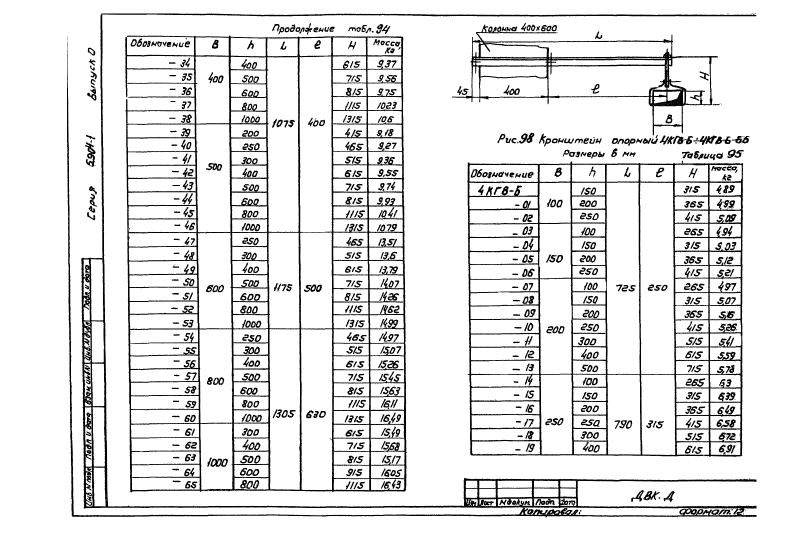 Продолжение табл. 94
Обозначение B h L ℓ H Масса кг
-34 400 400 1075 400 615 9,37
-35 500 715 9,56
-36 600 815 9,75
-37 800 1115 10,23
-38 1000 1315 10,6
-39 500 200 415 9,18
-40 250 465 9,27
-41 300 515 9,36
-42 400 615 9,55
-43 500 715 9,74
-44 600 815 9,93
-45 800 1115 10,41
-46 1000 1315 10,79
-47 600 250 1175 500 465 13,51
-48 300 515 13,6
-49 400 615 13,79
-50 500 715 14,07
-51 600 815 14,26
-52 800 1115 14,62
-53 1000 1315 14,99
-54 800 250 1305 630 465 14,97
-55 300 515 15,07
-56 400 615 15,26
-57 500 715 15,45
-58 600 815 15,63
-59 800 1115 16,11
-60 1000 1315 16,49
-61 1000 300 615 15,49
-62 400 715 15,68
-63 500 815 15,17
-64 600 915 16,05
-65 800 1115 16,43
Колонна 400х600
L
H
h
45
400
ℓ
B
Рис. 98 Кронштейн опорный 4КГВ-Б÷4КГВ-Б-66
Размеры в мм Таблица 95
Обозначение B h L ℓ H масса, кг
4КГВ-Б 100 150 725 250 315 4,89
-01 200 365 4,99
-02 250 415 5,09
-03 150 100 265 4,94
-04 150 315 5,03
-05 200 365 5,12
-06 250 415 5,21
-07 200 100 265 4,97
-08 150 315 5,07
-09 200 365 5,16
-10 250 415 5,26
-11 300 515 5,41
-12 400 615 5,59
-13 500 715 5,78
-14 250 100 790 315 265 6,3
-15 150 315 6,39
-16 200 365 6,49
-17 250 415 6,58
-18 300 515 6,72
-19 400 615 6,91
Изм Лист №докум. Подп. Дата
ДВК.Д
Копировал:
Формат 12
Серия 5.904-1 Выпуск 0
Инв.№подл. Подп. и дата Взам.инв№ Инв.№дубл. Подп. и дата